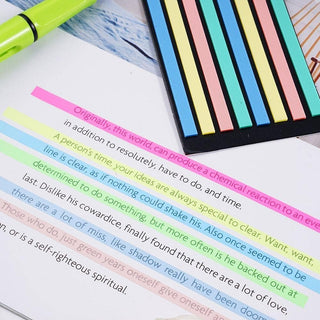 Originally, this world, can produce a chemical reaction to an eve
in addition to resolutely, have to do, and time.
A person's time, your ideas are always special to clear. Want, want,
line is clear, as if nothing could shake his. Also once seemed to be
determined to do something, but more often is he backed out at
last. Dislike his cowardice, finally found that there are a lot of love,
there are a lot of miss, like shadow really have been doom
Those who do, just green years oneself give oneself an
on, or is a self-righteous spiritual.